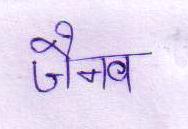 जैनव